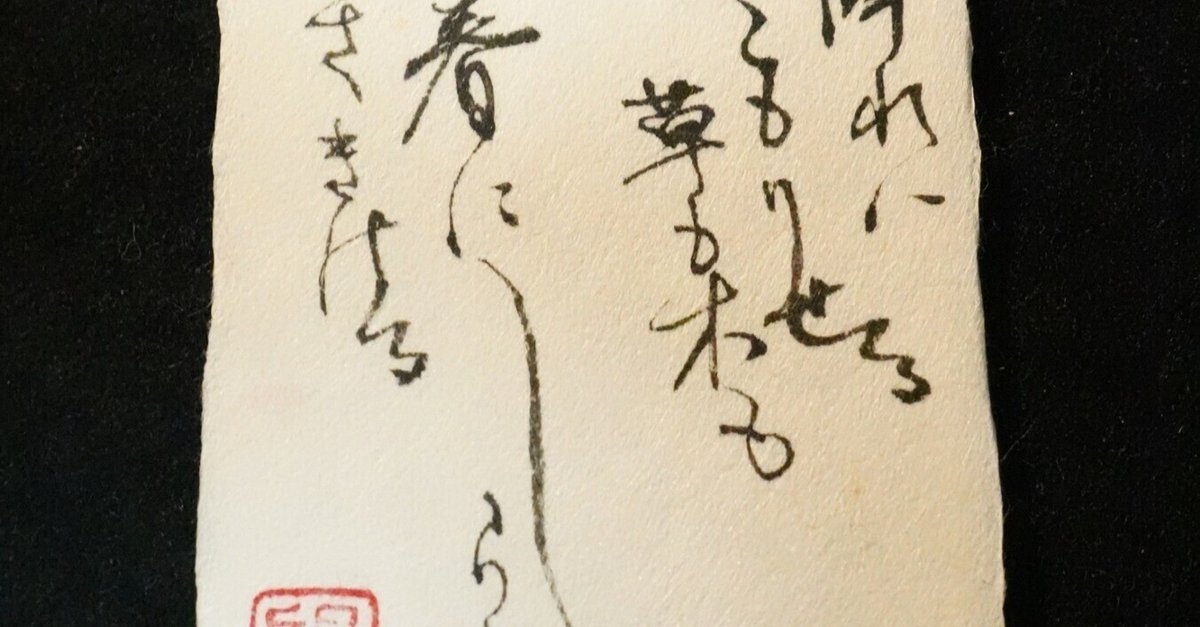 れハ
こもりせる
草も木も
春にしら
さきける